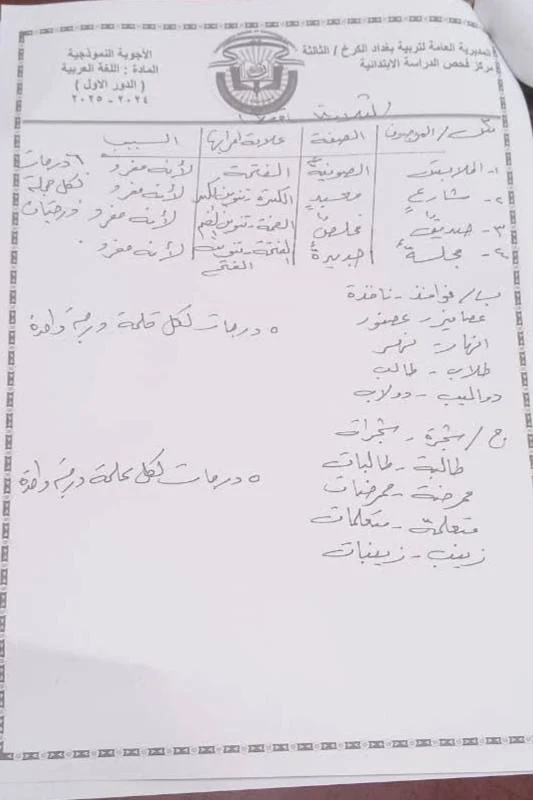 المديرية العامة لتربية بغداد الكرخ / الثالثة
مركز فحص الدراسة الابتدائية
الأجوبة النموذجية
المادة : اللغة العربية
( الدور الأول )
٢٠٢٤ - ٢٠٢٥
الموصوف الصفة علامة إعرابها السبب
١- الملابس الصوفية الفتحة لأنه مفرد
٢- شارع معبد الكسرة تنوين الكسر لأنه مفرد
٣- صديق مخلص الضمة - تنوين الضم لأنه مفرد
٤- مجلة جديدة الفتحة - تنوين الفتح لأنه مفرد
٦ درجات لكل جملة درجتان
ب / نوافذ - نافذة
عصافير - عصفور
انهار - نهر
طلاب - طالب
دواليب - دولاب
٥ درجات لكل كلمة درجة واحدة
ج / شجرة - شجرات
طالبة - طالبات
ممرضة - ممرضات
متعلمة - متعلمات
زينب - زينبات
٥ درجات لكل كلمة درجة واحدة